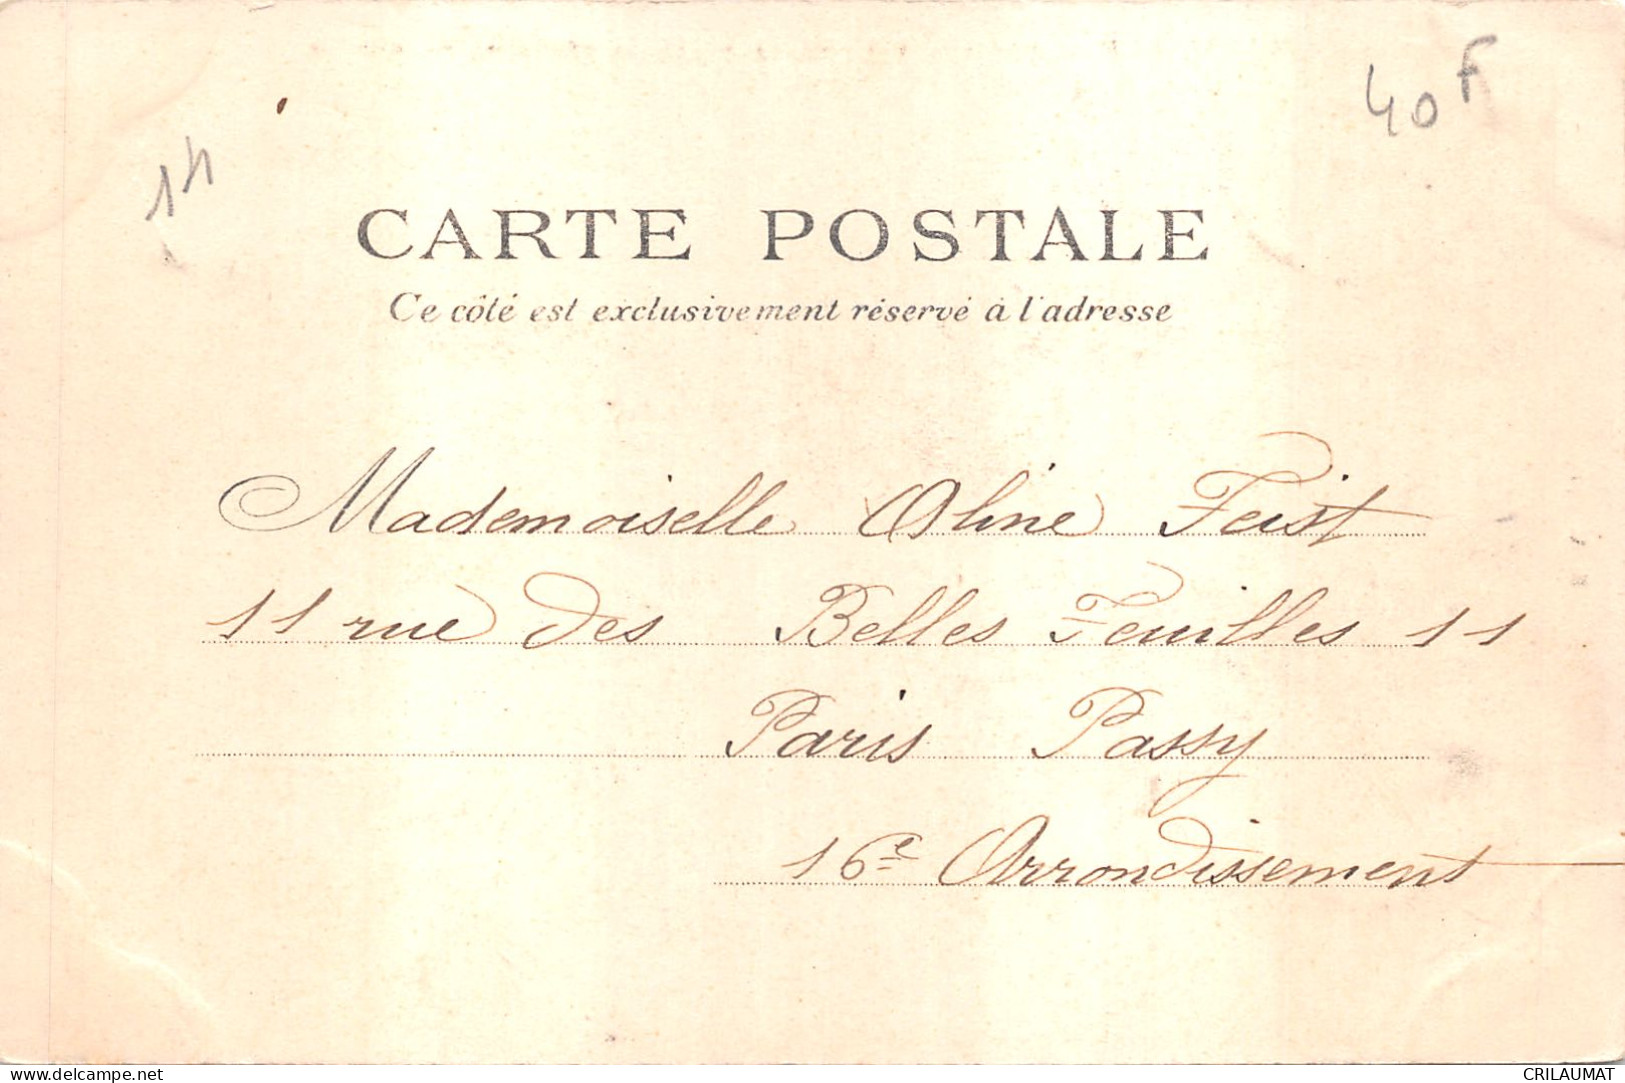 14
40F
CARTE POSTALE
Ce côté est exclusivement réservé à l'adresse
Mademoiselle Aline Feist
11 rue des Belles Feuilles 11
Paris Passy
16e Arrondissement
delcampe.net
CRILAUMAT